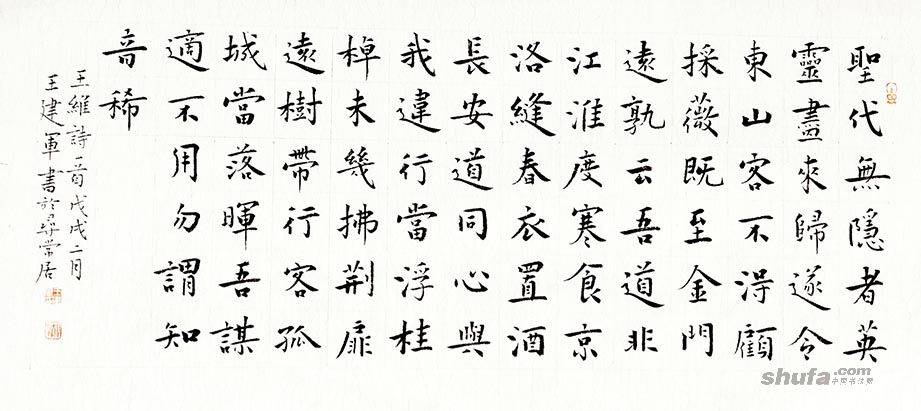 聖代無隱者英
靈盡來歸遂令
東山客不得顧
採薇既至金門
遠孰云吾道非
江淮度寒食京
洛縫春衣置酒
長安道同心與
我違行當浮桂
棹未幾拂荆扉
遠樹帶行客孤
城當落暉吾謀
適不用勿謂知
音稀
王維詩一首戊戌二月
王建軍書於尋常居
shufa.com